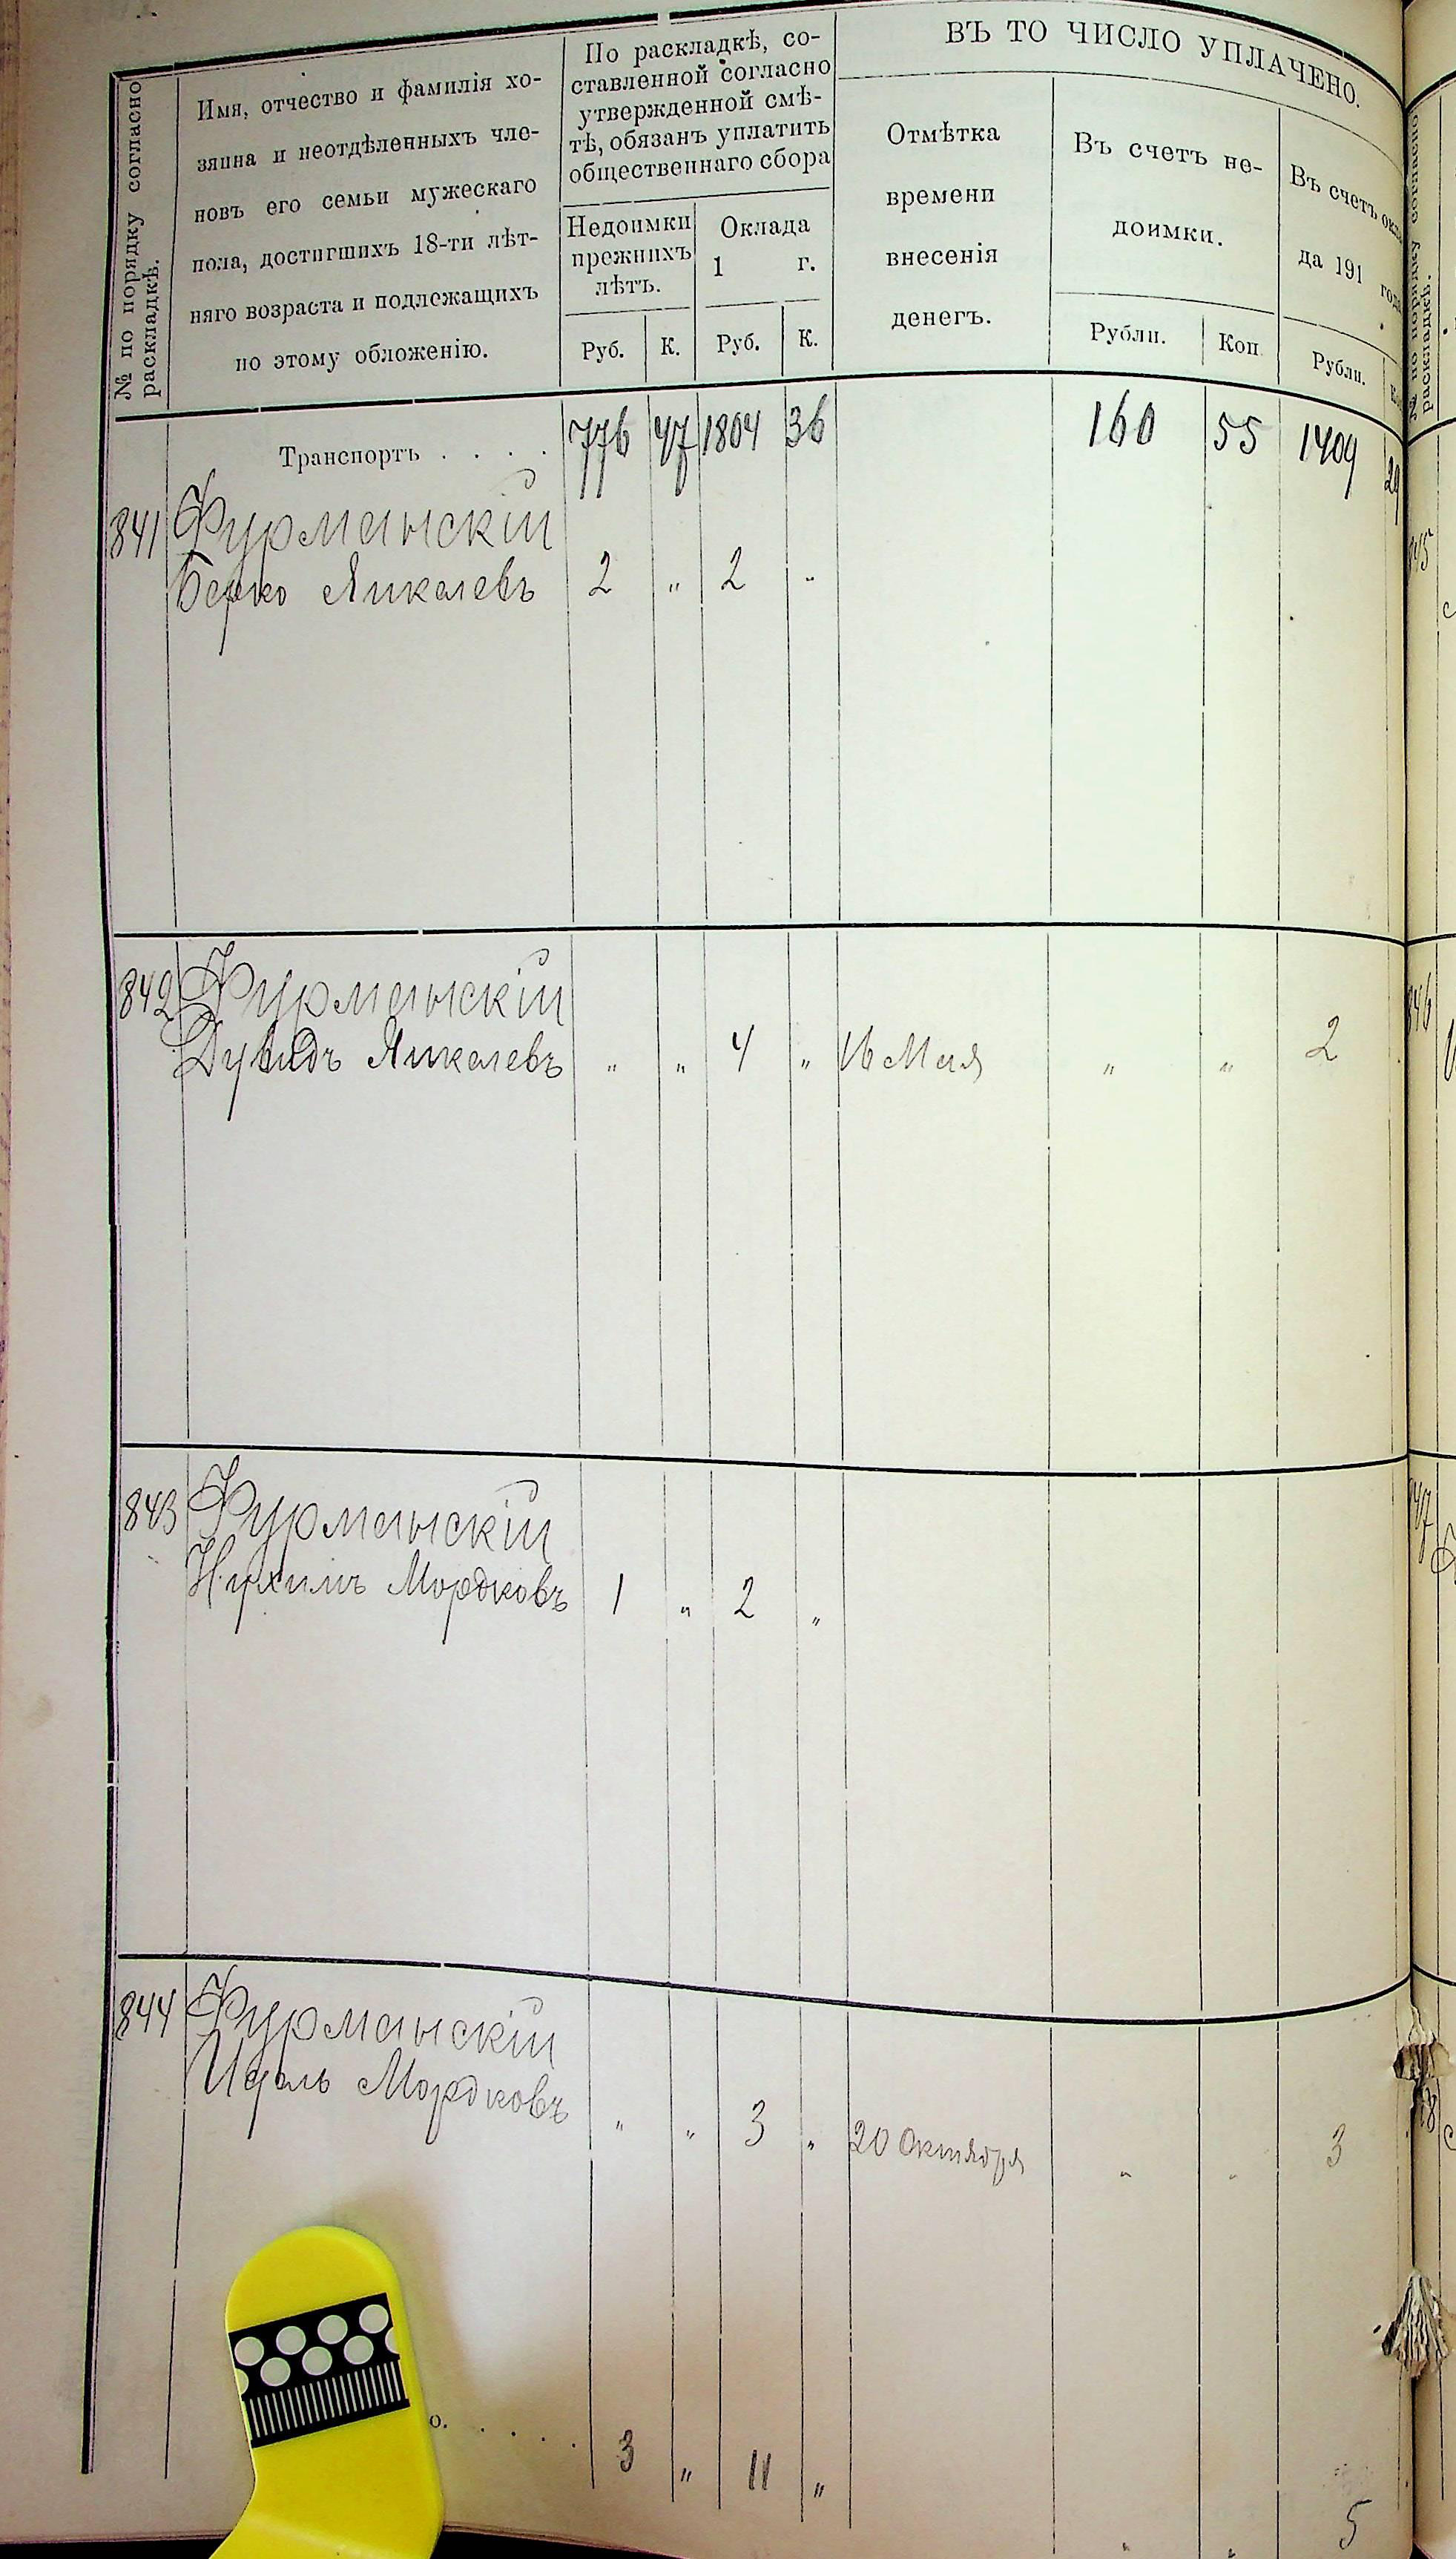 № по порядку согласно
раскладкѣ.
Имя, отчество и фамилія хо-
зяина и неотдѣленныхъ чле-
новъ его семьи мужескаго
пола, достигшихъ 18-ти лѣт-
няго возраста и подлежащихъ
по этому обложенію.
По раскладкѣ, со-
ставленной согласно
утвержденной смѣ-
тѣ, обязанъ уплатить
общественнаго сбора
Недоимки
прежнихъ
лѣтъ.
Руб. К.
Оклада
1 г.
Руб. К.
ВЪ ТО ЧИСЛО УПЛАЧЕНО.
Отмѣтка
времени
внесенія
денегъ.
Въ счетъ не-
доимки.
Рубли. Коп.
Въ счетъ окла
да 191 года
Рубли.
Транспортъ . . . . 776 47 1804 36 160 55 1409 29
841 Фурманскій
Берко Янкелевъ 2 " 2 "
842 Фурманскій
Дувидъ Янкелевъ " " 4 " 16 Мая " " 2
843 Фурманскій
Нухимъ Мордковъ 1 " 2 "
844 Фурманскій
Идель Мордковъ " " 3 " 20 Октября " " 3
о. . . . . 3 " 11 " " " 5